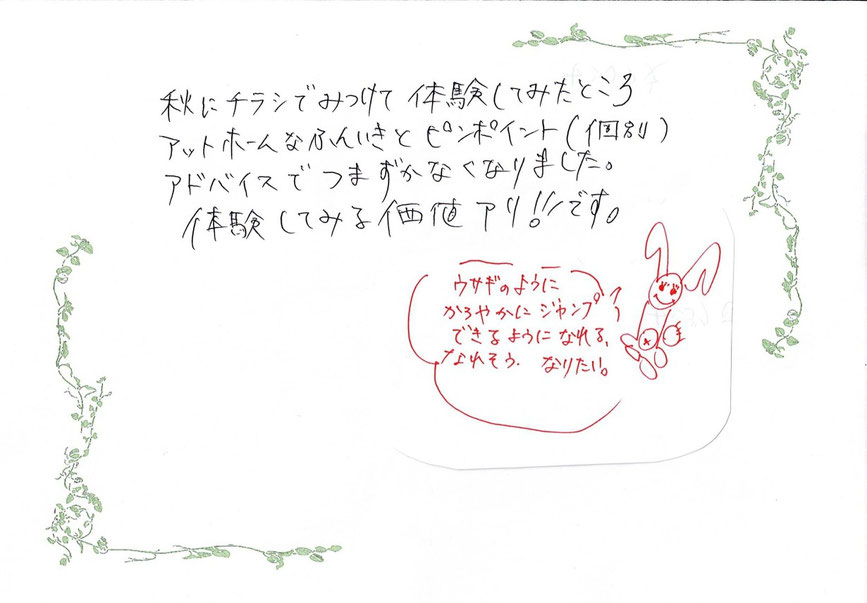 秋にチラシでみつけて 体験してみたところ
アットホームなふんいきと ピンポイント(個別)
アドバイスで つまずかなくなりました。
体験してみる価値アリ!!です。
ウサギのように
かろやかに ジャンプ
できるように なれる、
なれそう. なりたい。